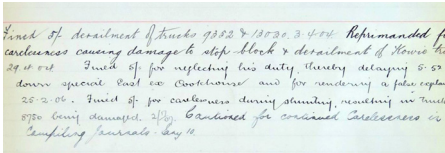 Fined 5/- derailment of trucks 9352 & 13030. 3.4.04. Reprimanded f
carelessness causing damage to stop block & derailment of Howie
29.4.04 Fined 5/- for neglecting his duty, thereby delaying 5-50
down special East ex Cookhouse and for rendering a false explan
25.2.06. Fined 5/- for carelessness during shunting, resulting in truck
8750 being damaged. Cautioned for continued Carelessness in
Compiling Journals - May 10